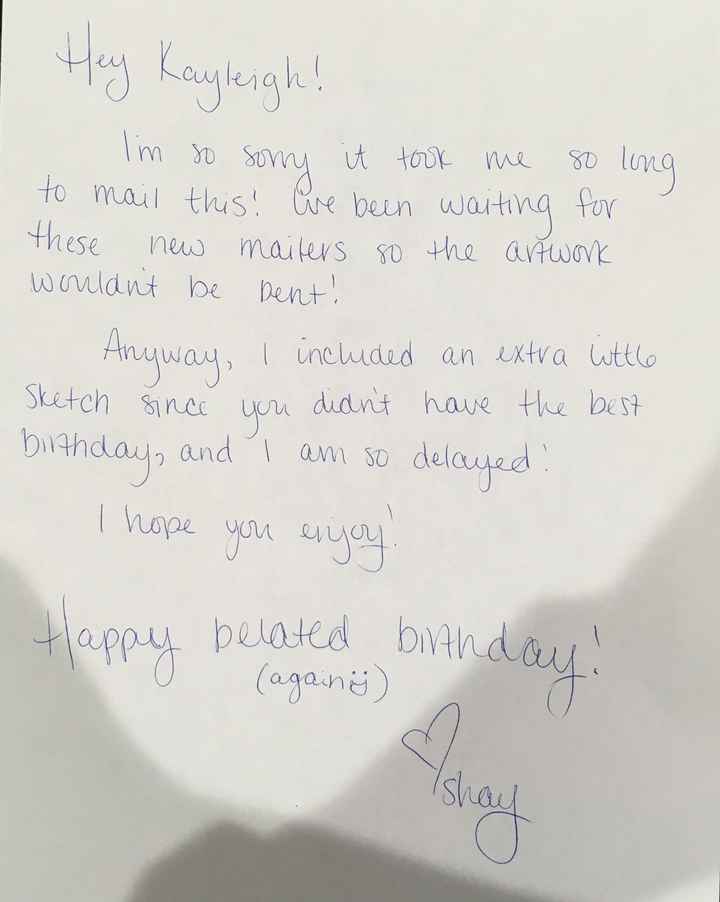 Hey Kayleigh!
I'm so sorry it took me so long
to mail this! I've been waiting for
these new mailers so the artwork
wouldn't be bent!
Anyway, I included an extra little
sketch since you didn't have the best
birthday, and I am so delayed!
I hope you enjoy!
Happy belated birthday!
(again ü)
♡ Shay